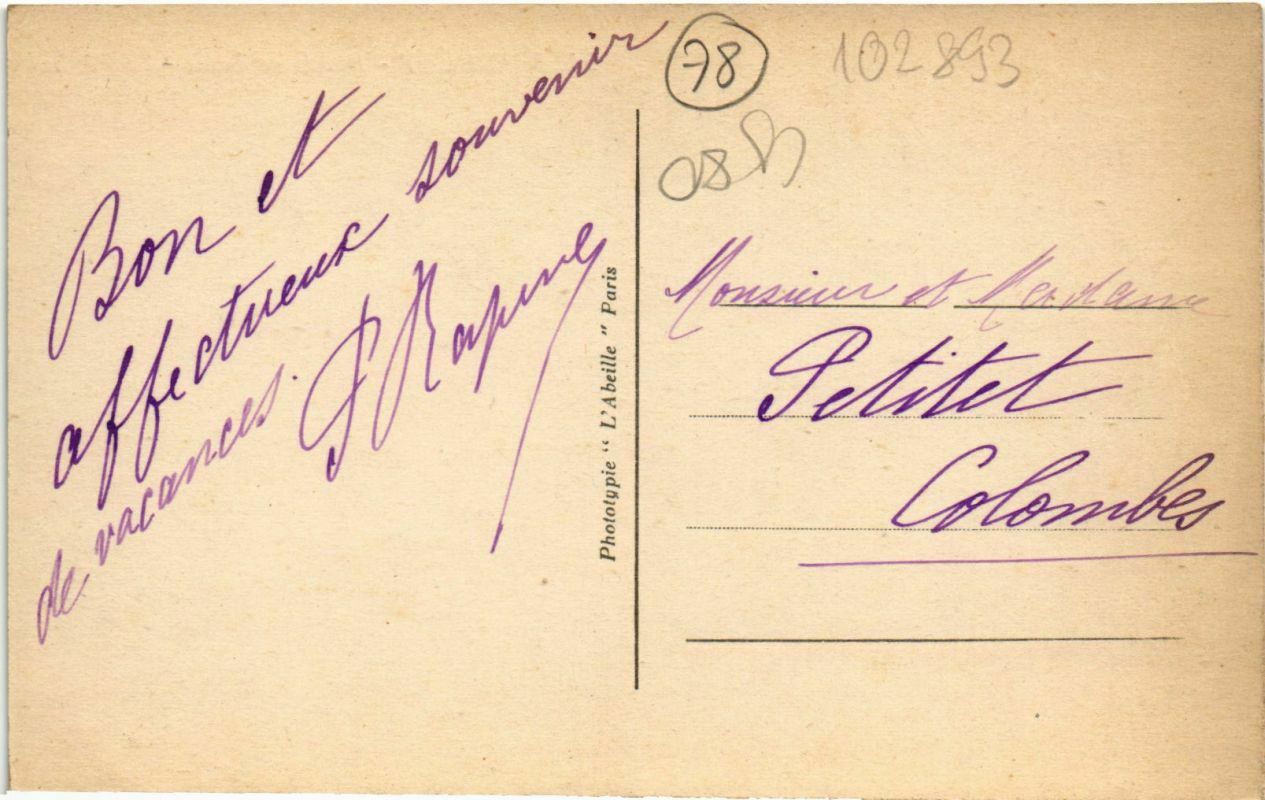 Bon et
affectueux souvenir
de vacances.
Phototypie “ L'Abeille ” Paris
78
102893
Monsieur et Madame
Petitet
Colombes